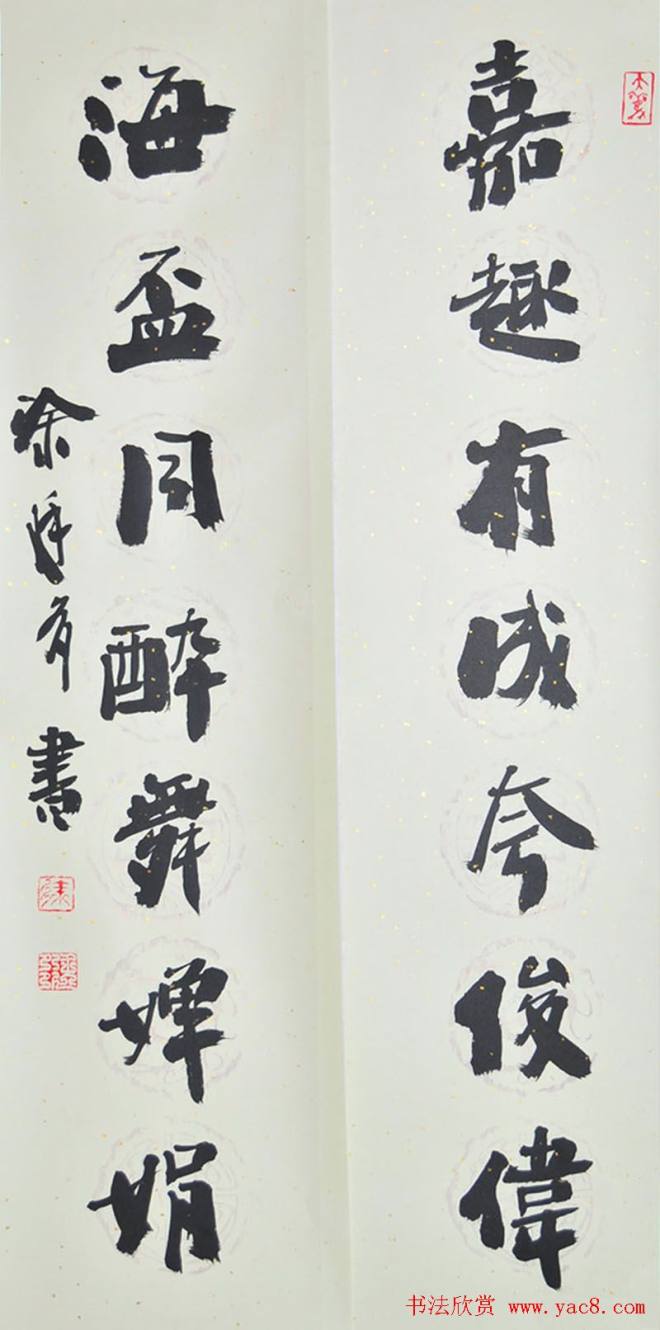 嘉趣有成夸俊偉
海盃同醉舞嬋娟
書
书法欣赏 www.yac8.com